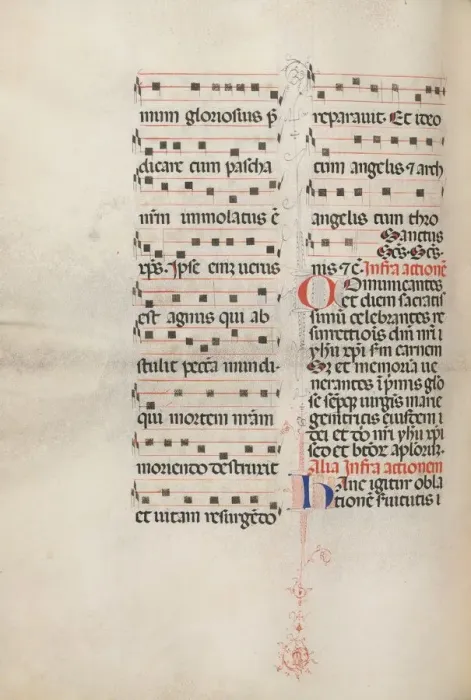 mum gloriosius p̄
dicare cum pascha
nr̄m immolatus ē
xp̄s. Ipse eniz uerus
est agnus qui ab
stulit pecc̄a mundi.
qui mortem nr̄am
moriendo destruxit
et uitam resurgēdo
reparauit. Et ideo
cum angelis ⁊ arch
angelis cum thro
Sanctus
Scs. Scs.
nis ⁊c̄. Infra actionē
Communicantes
et diem sacratis
simū celebrantes re
surrectiōis dn̄i nr̄i
yhu xp̄i s̄m carnem
Sz et memoriā ue
nerantes ī p̄mis glo
se sēpqꝫ uirgīs marie
genitricis eiusdem
dei et dn̄i nr̄i yhu xp̄i
sed et btōꝝ aplōꝝ.
Alia Infra actionem
Hanc igitur obla
tionē ẜuitutis